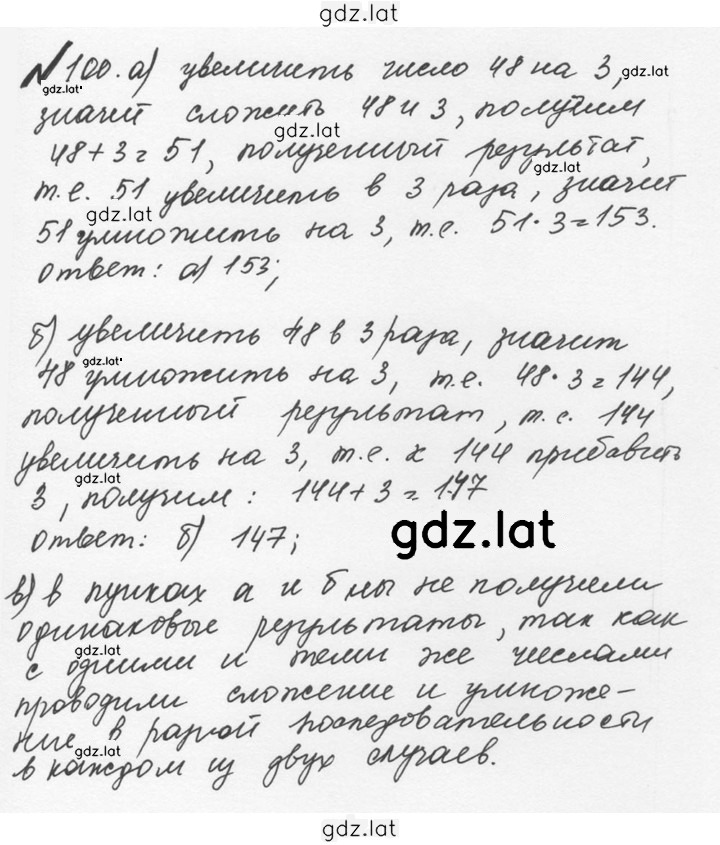 gdz.lat
№ 100. а) увеличить число 48 на 3,
gdz.lat gdz.lat
значит сложить 48 и 3, получим
gdz.lat
48+3=51, полученный результат,
gdz.lat
т.е. 51 увеличить в 3 раза, значит
gdz.lat
51 умножить на 3, т.е. 51·3=153.
ответ: а) 153;
б) увеличить 48 в 3 раза, значит
gdz.lat
48 умножить на 3, т.е. 48·3=144,
полученный результат, т.е. 144
увеличить на 3, т.е. к 144 прибавить
3, получим: 144+3=147
ответ: б) 147;
gdz.lat
в) в пунках а и б мы не получили
одинаковые результаты, так как
gdz.lat
с одними и теми же числами
проводили сложение и умноже-
ние в разной последовательности
gdz.lat
в каждом из двух случаев.
gdz.lat